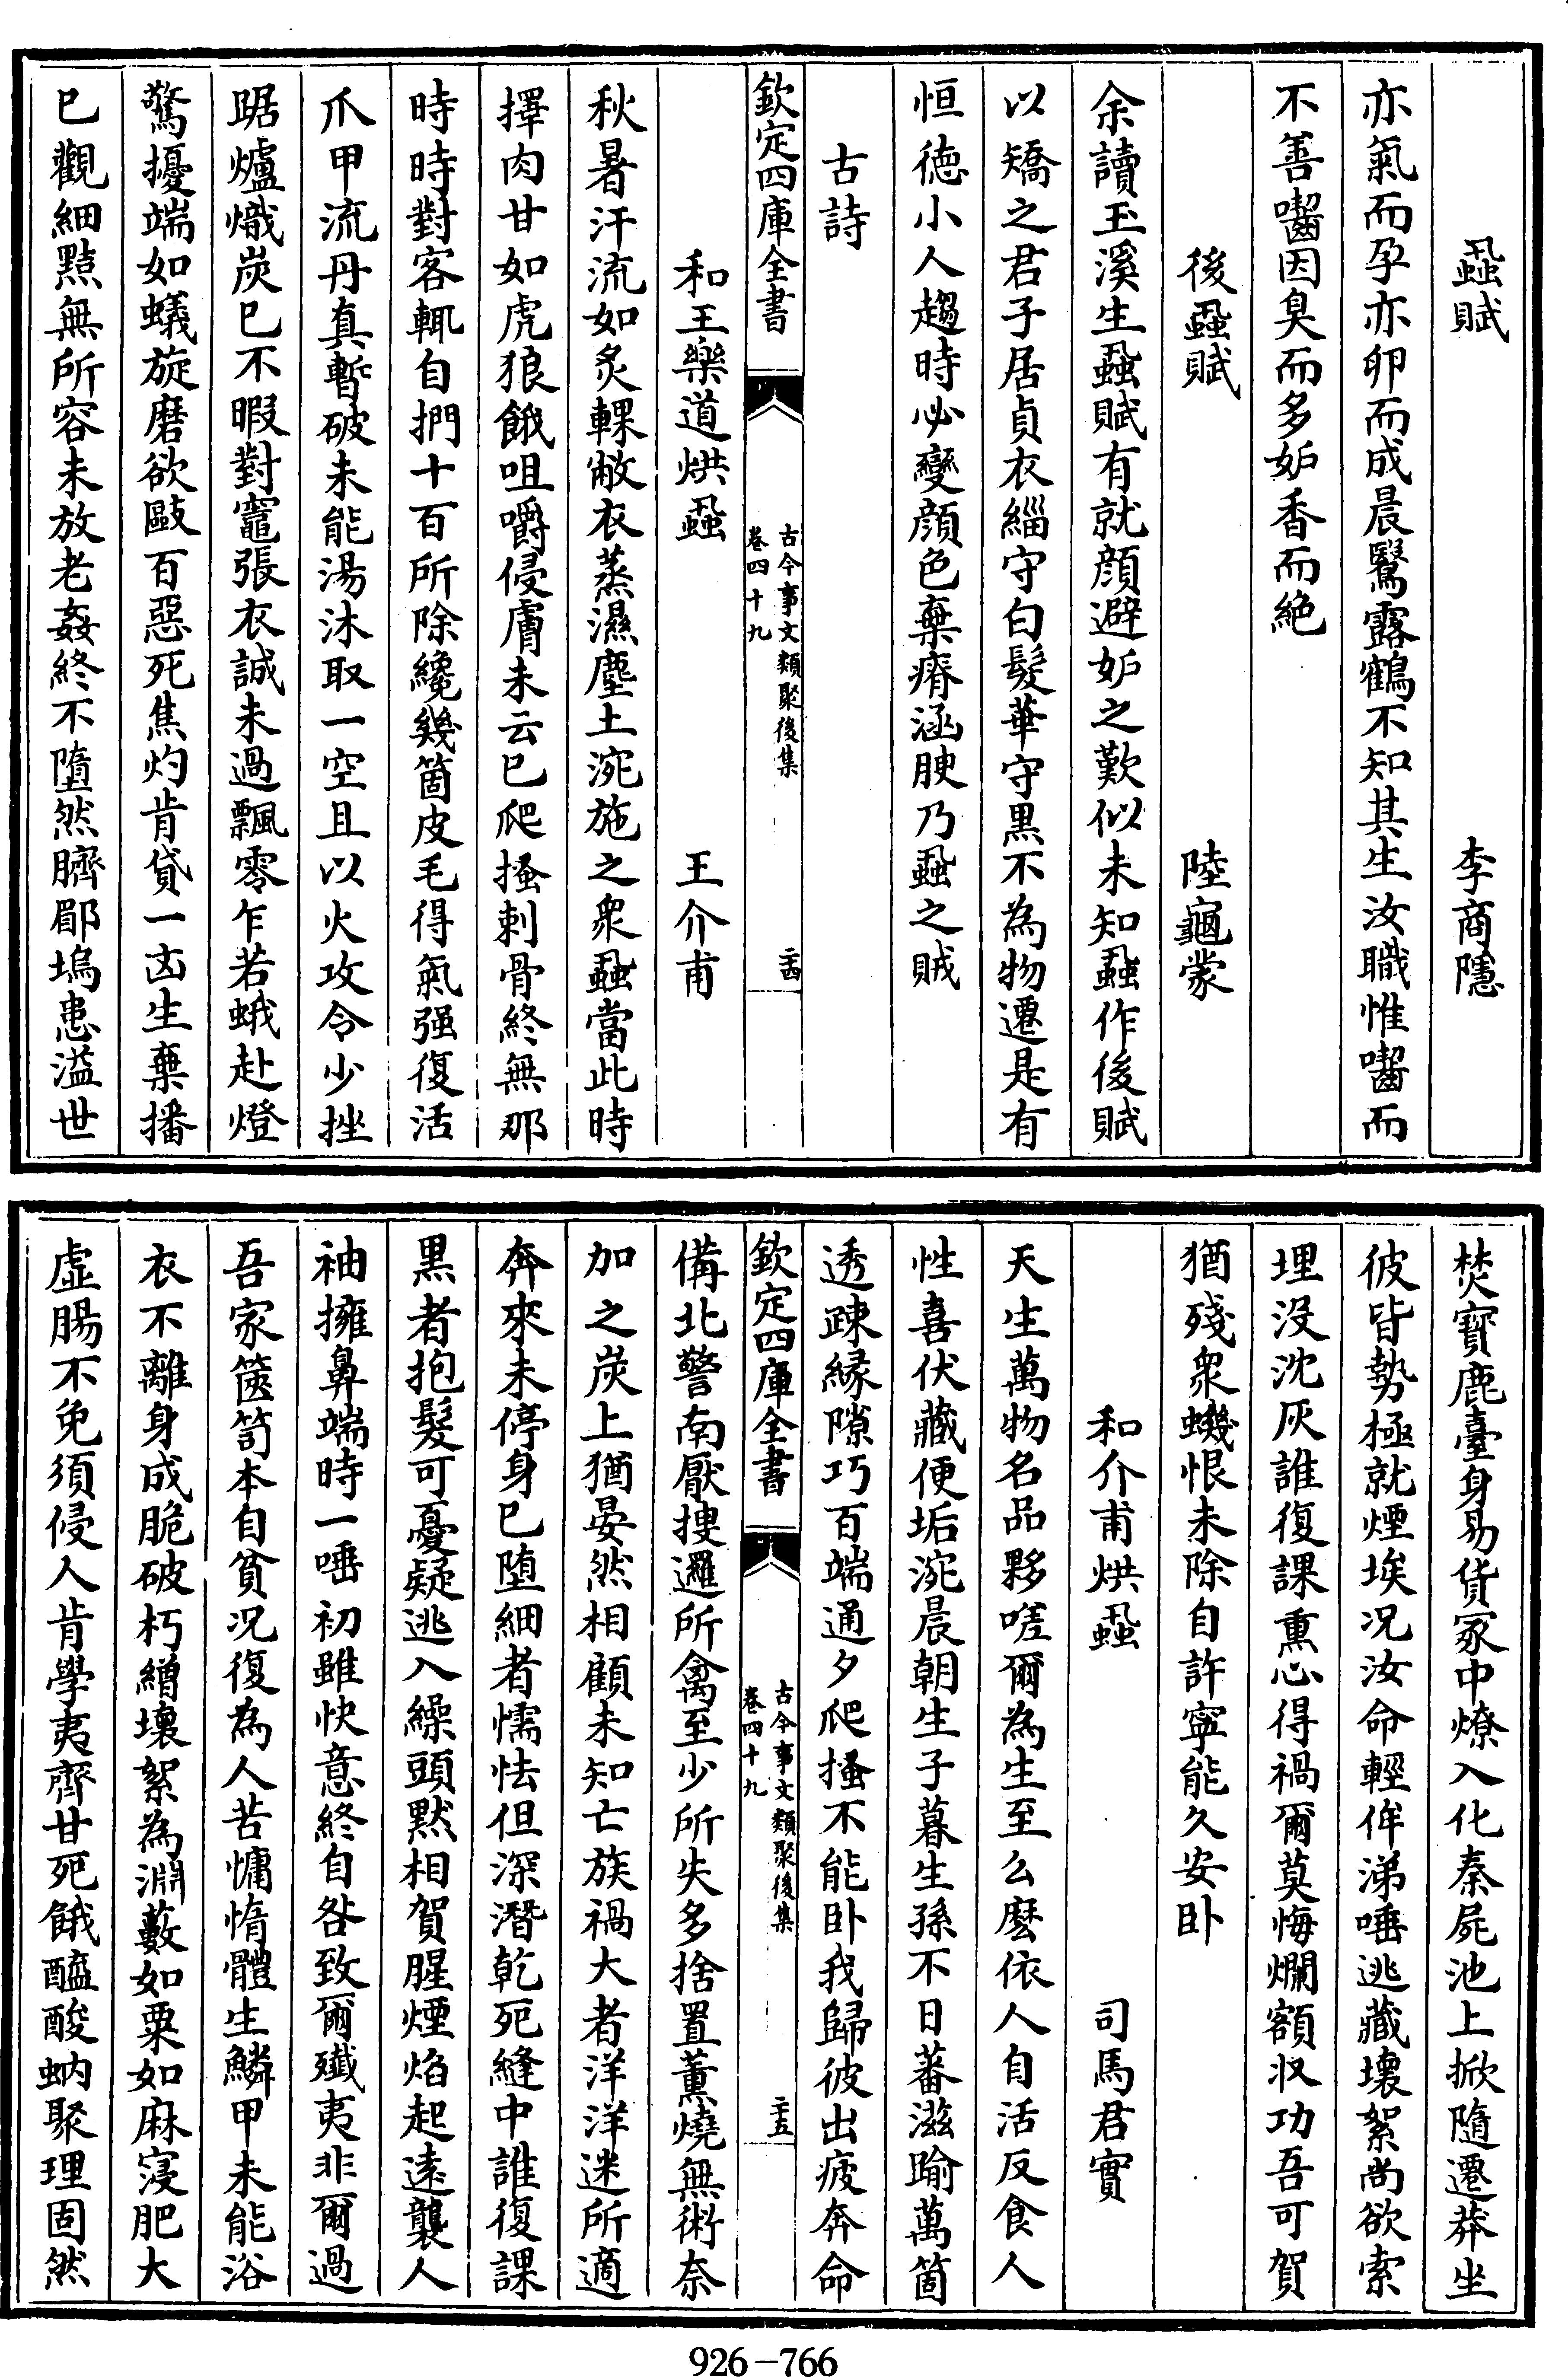 蝨賦 李商隱
亦氣而孕亦卵而成晨鷖露鶴不知其生汝職惟囓而
不善囓因臭而多妒香而絶
後蝨賦 陸龜蒙
余讀玉溪生蝨賦有就顔避妒之歎似未知蝨作後賦
以矯之君子居貞衣緇守白髮華守黒不為物遷是有
恒徳小人趨時必變顔色棄瘠涵腴乃蝨之賊
古詩
欽定四庫全書 古今事文類聚後集 卷四十九 二十四
和王樂道烘蝨 王介甫
秋暑汗流如炙輠敝衣蒸濕塵土涴施之衆蝨當此時
擇肉甘如虎狼餓咀嚼侵膚未云已爬搔刺骨終無那
時時對客輒自捫十百所除纔幾箇皮毛得氣强復活
爪甲流丹真暫破未能湯沐取一空且以火攻令少挫
踞爐熾炭已不暇對竈張衣誠未過飄零乍若蛾赴燈
驚擾端如蟻旋磨欲毆百惡死焦灼肯貸一凶生棄播
已觀細黠無所容未放老姦終不墮然臍郿塢患溢世
焚寶鹿臺身易貨冢中燎入化秦屍池上掀隨遷莽坐
彼皆勢極就煙埃况汝命輕侔涕唾逃藏壞絮尚欲索
埋没沈灰誰復課熏心得禍爾莫悔爛額收功吾可賀
猶殘衆蟣恨未除自許寧能久安卧
和介甫烘蝨 司馬君實
天生萬物名品夥嗟爾為生至么麽依人自活反食人
性喜伏藏便垢涴晨朝生子暮生孫不日蕃滋踰萬箇
透疎緣隙巧百端通夕爬搔不能卧我歸彼出疲奔命
欽定四庫全書 古今事文類聚後集 卷四十九 二十五
備北警南厭搜邏所禽至少所失多捨置薫燒無術奈
加之炭上猶晏然相顧未知亡族禍大者洋洋迷所適
奔來未停身已堕細者懦怯但深潛乾死縫中誰復課
黒者抱髮可憂疑逃入繰頭黙相賀腥煙焰起逺襲人
袖擁鼻端時一唾初雖快意終自咎致爾殱夷非爾過
吾家篋笥本自貧况復為人苦慵惰體生鱗甲未能浴
衣不離身成脆破朽繒壞絮為淵藪如粟如麻寖肥大
虛腸不免須侵人肯學夷齊甘死餓醯酸蚋聚理固然
926-766